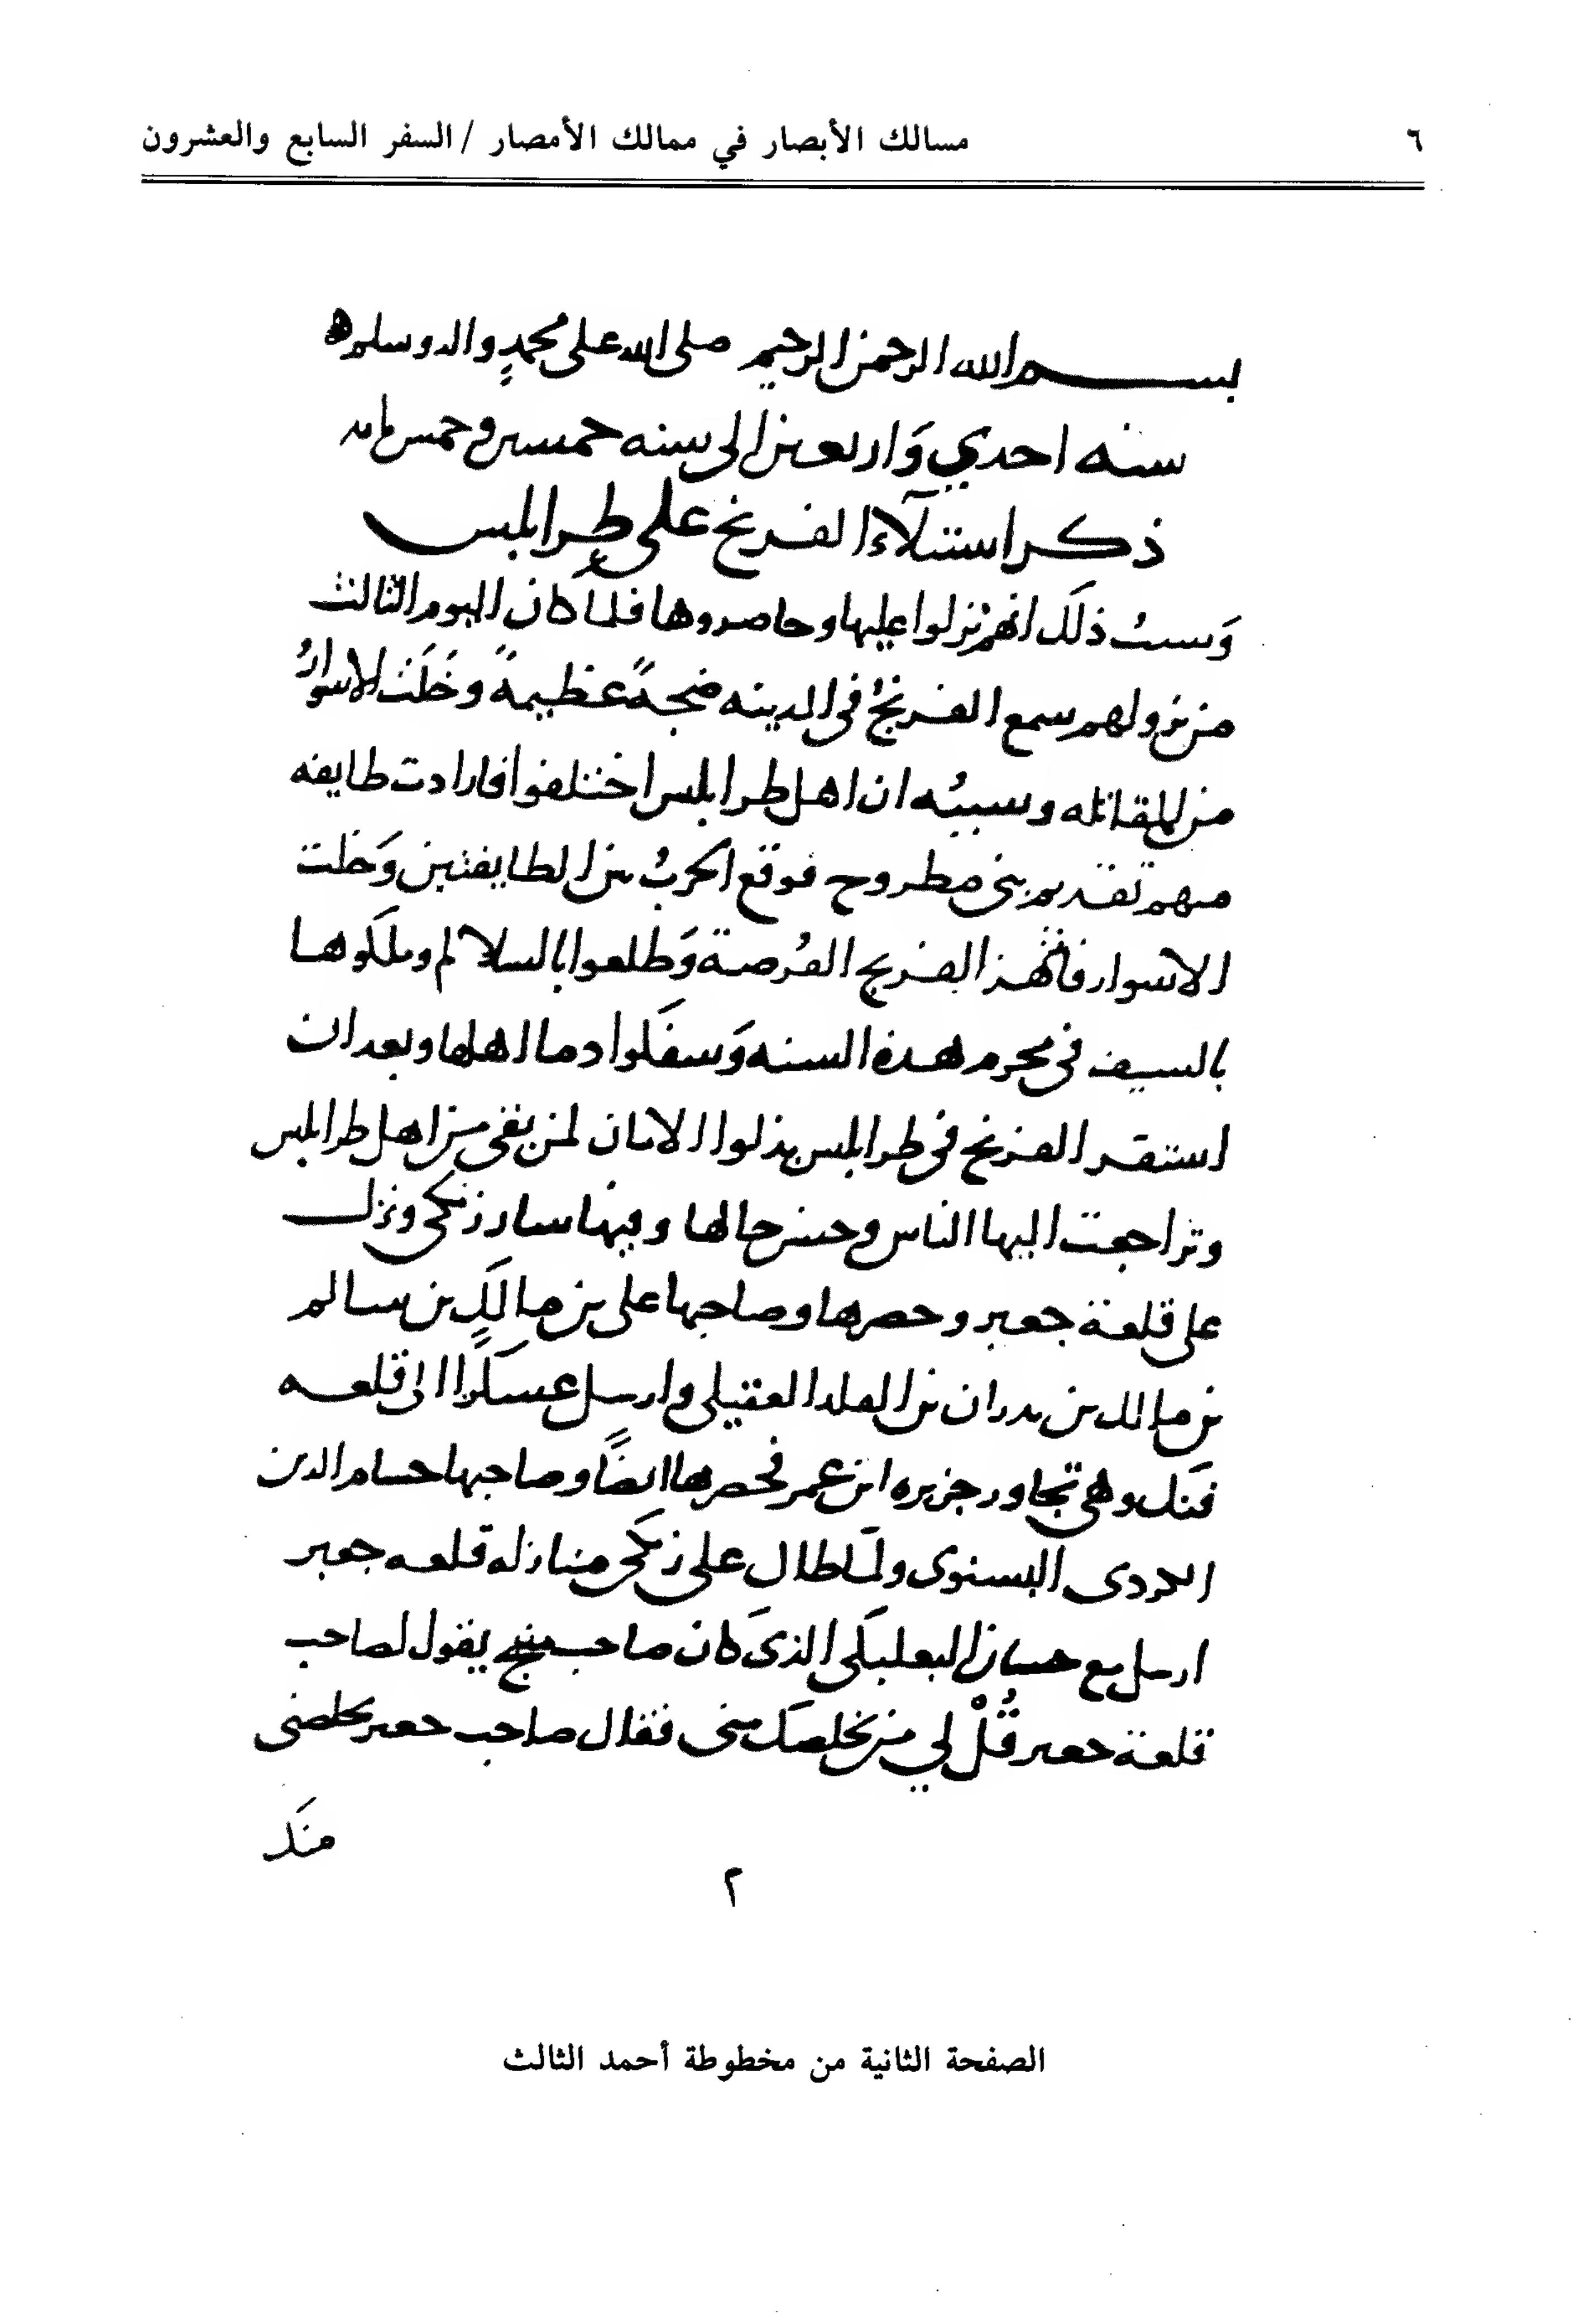 ٦
مسالك الأبصار في ممالك الأمصار / السفر السابع والعشرون
بسم الله الرحمن الرحيم صلى الله على محمدٍ واله وسلم
سنه احدي وَاربعين الى سنه خمسين وخمس مايه
ذكر استيلآء الفرنج على طرابلس
وَسببُ ذلَك انهمْ نزلوا عليها وحاصروها فلما كان اليوم الثالث
من نزولهم سمع الفرنجُ في المدينه ضجةً عظيمةً وخَلَت الاسوارُ
من المقاتله وسببُه ان اهل طرابلس اختلفوا فارادت طايفه
منهم تقديم بني مطروح فوقع الحربُ بين الطايفتين وَخلت
الاسوار فانتهز الفرنج الفُرصة وَطلعوا بالسلالم وملكوها
بالسيف في محرم هذه السنه وَسفكوا دما اهلها وبعد ان
استقر الفرنج في طرابلس بذلوا الامان لمن بقي من اهل طرابلس
وتراجعت اليها الناس وحسن حالها وفيها سار زنكي ونزل
على قلعة جعبر وحصرها وصاحبها علي بن مالكِ بن سالم
بن مالك بن بدران بن المقلد العقيلي وارسل عسكرًا الى قلعه
فنك وهي تجاور جزيره ابن عمر فحصرها ايضًا وصاحبها حسام الدين
الكردى البشنوى ولمّا طال على زنكى منازله قلعه جعبر
ارسل مع حسان البعلبكى الذى كان صاحب منبج يقول لصاحب
قلعة جعبر قُلْ لي من يخلصك مني فقال صاحب جعبر يخلصني
منكَ
٢
الصفحة الثانية من مخطوطة أحمد الثالث